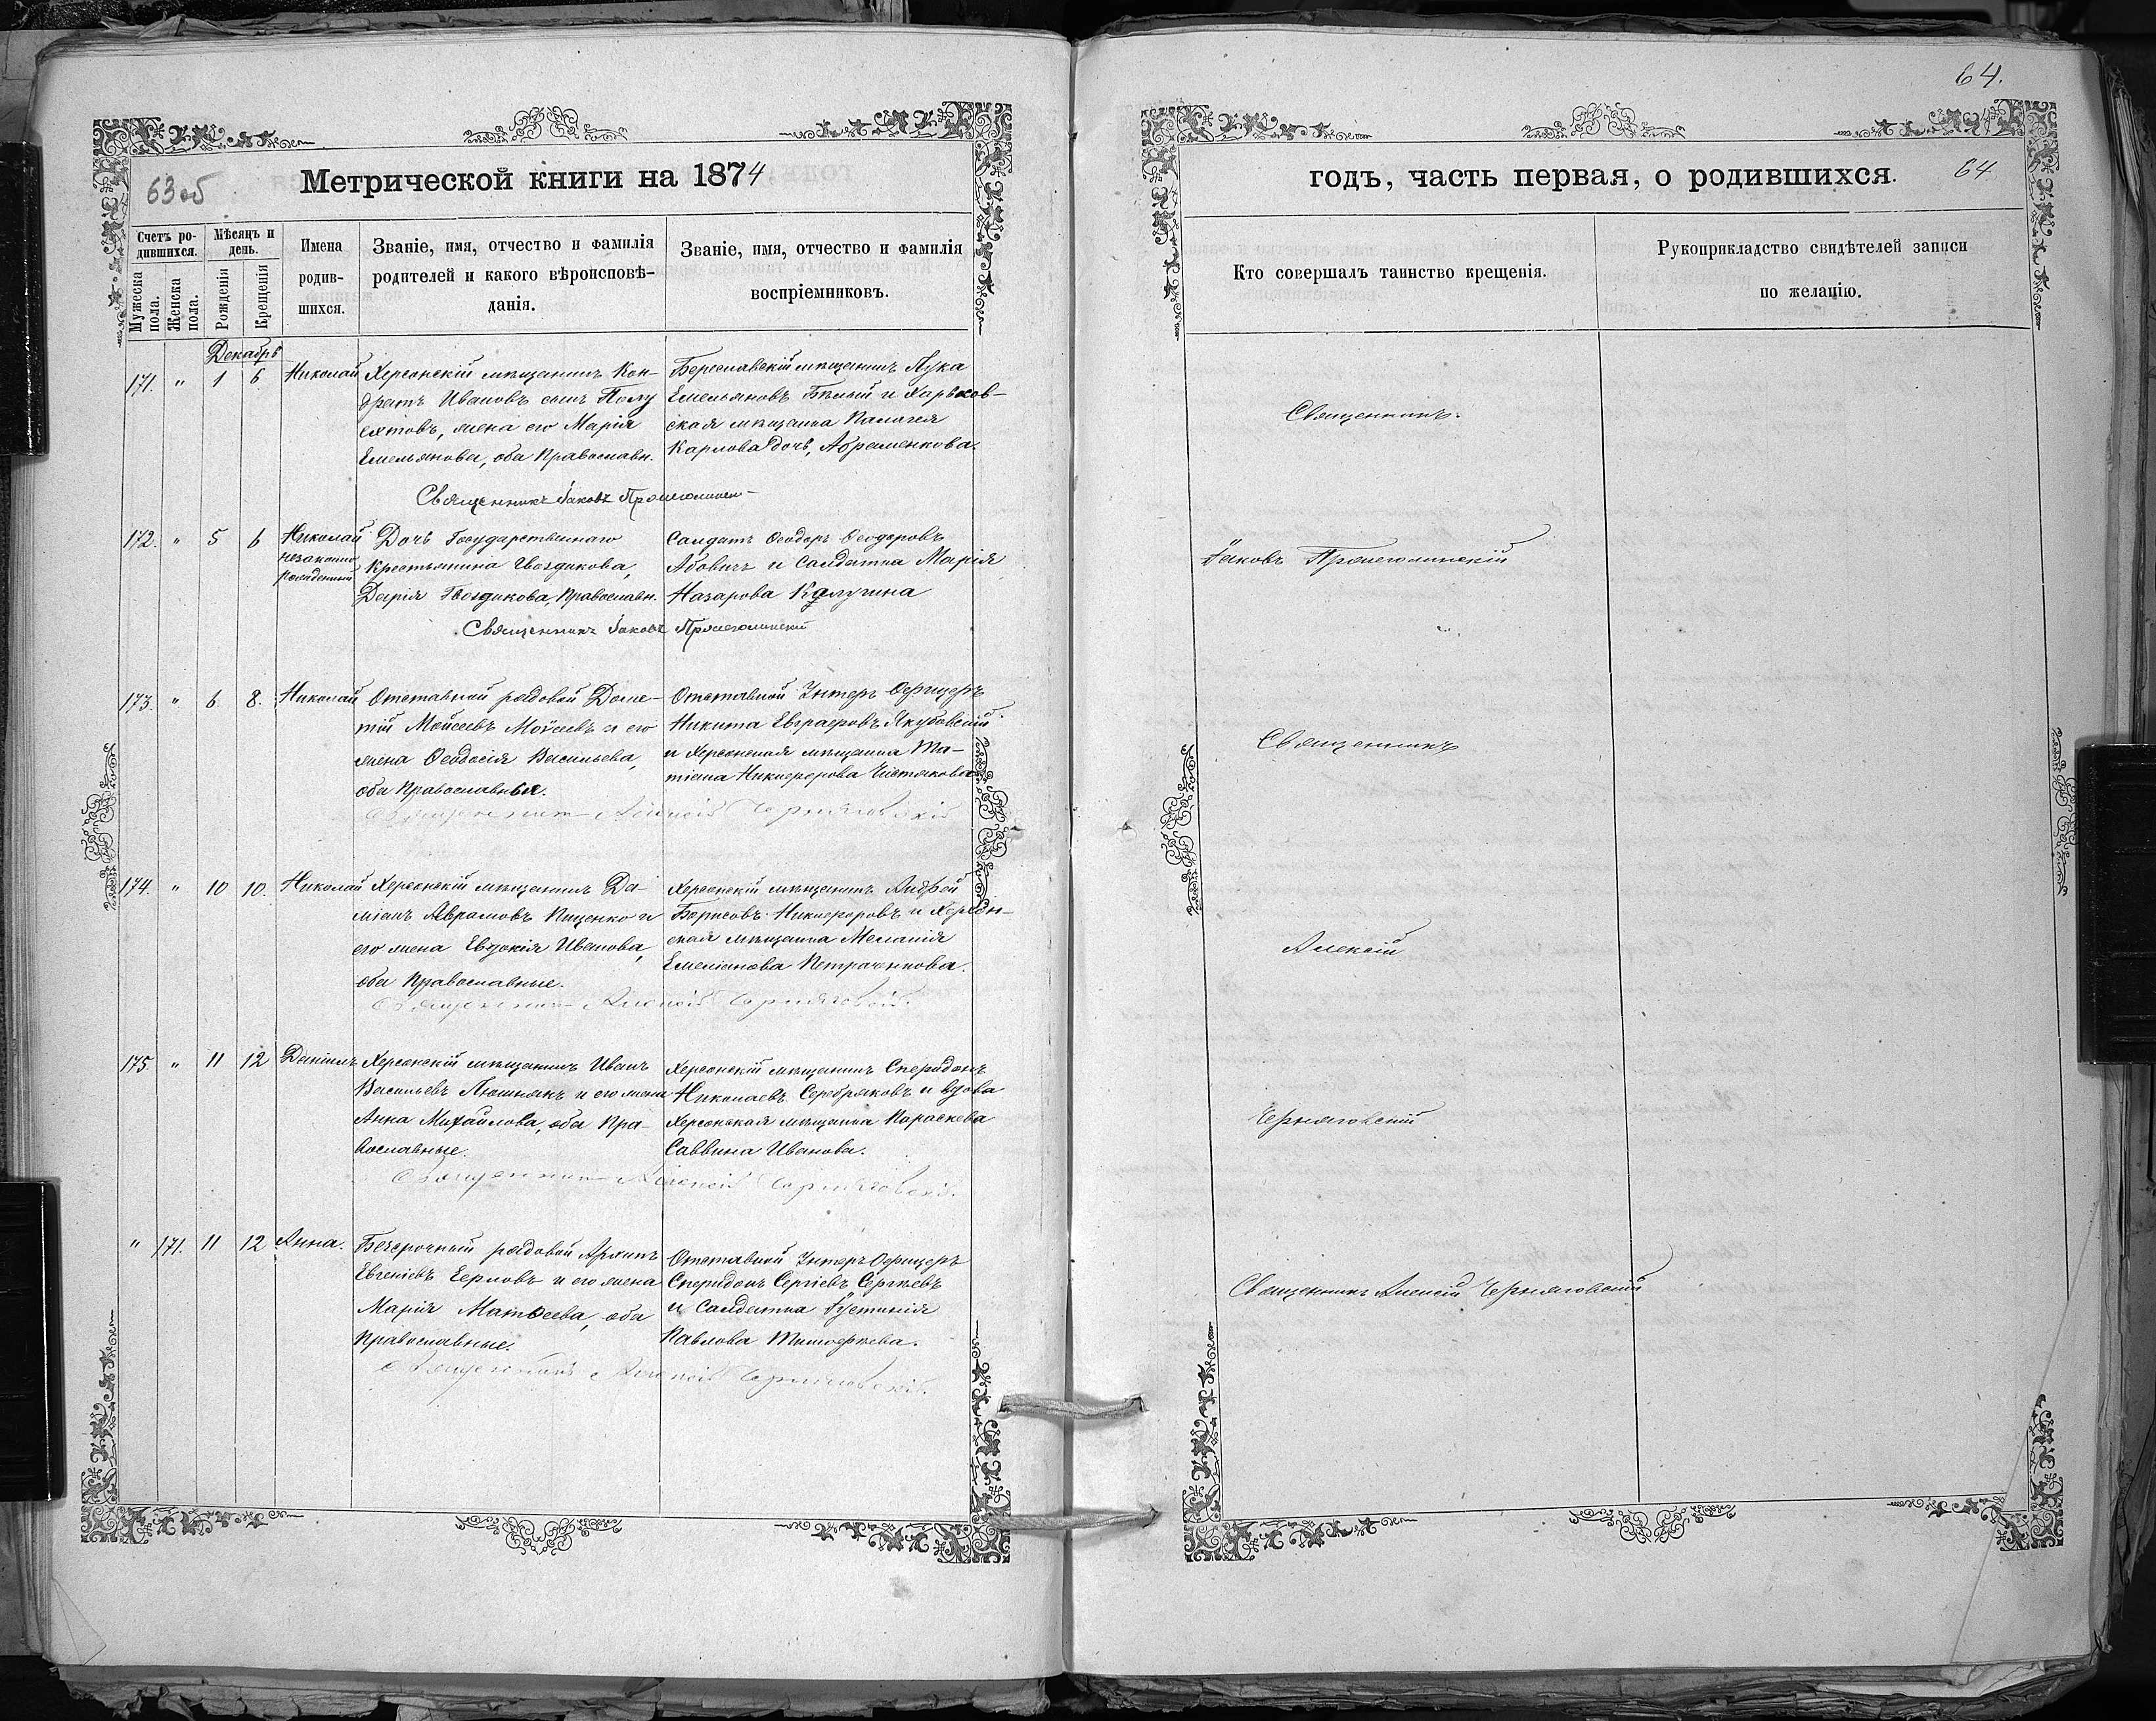 63 об
Метрической книги на 1874
Счетъ ро-
дившихся.
Мужеска
пола.
Женска
пола.
Мѣсяцъ и
день.
Рожденія
Крещенія
Имена
родив-
шихся.
Званіе, имя, отчество и фамилія
родителей и какого вѣроисповѣ-
данія.
Званіе, имя, отчество и фамилія
воспріемниковъ.
Декабрь
171. " 1 6 Николай
Херсонскій мѣщанинъ Кон-
дратъ Ивановъ сынъ Полу
ектовъ, жена его Марія
Емельянова, оба Православн.
Бериславскій мѣщанинъ Лука
Емельяновъ Бѣлый и Харьков-
ская мѣщанка Палагея
Карпова дочь, Абраменкова.
Священникъ Іаковъ
172. " 5 6 Николай
незаконно
рожденный
Дочь Государственнаго
Крестьянина Гвоздикова,
Дарія Гвоздикова, Православн.
Солдатъ Ѳеодоръ Ѳеодоровъ
Абовичъ и Солдатка Марія
Назарова Калугина
Священникъ Іаковъ
173. " 6 8. Николай
Отставной рядовой Доме-
тій Мойсеевъ Мойсеевъ и его
жена Ѳеодосія Васильева,
оба Православныя.
Отставной Унтеръ Офицеръ
Никита Евграфовъ Якубовскій
и Херсонская мѣщанка Та-
тіана Никифорова Чистякова
Священникъ Алексій Черняховскій
174. " 10 10. Николай
Херсонскій мѣщанинъ Да-
міанъ Аврамовъ Пиценко и
его жена Евдокія Иванова,
оба Православные.
Херсонскій мѣщанинъ Андрей
Борисовъ Никифоровъ и Херсон-
ская мѣщанка Меланія
Емеліанова Петраченкова.
Священникъ Алексій Черняховскій.
175. " 11 12 Даніилъ
Херсонскій мѣщанинъ Иванъ
Васильевъ и его жена
Анна Михайлова, оба Пра-
вославные.
Херсонскій мѣщанинъ Спиридонъ
Николаевъ Серебряковъ и вдова
Херсонская мѣщанка Параскева
Саввина Иванова.
Священникъ Алексій Черняховскій.
" 171. 11 12 Анна.
Безсрочный рядовой Архипъ
Евгеніевъ и его жена
Марія Матѳеева, оба
Православные.
Отставной Унтеръ Офицеръ
Спиридонъ Сергіевъ Сергѣевъ
и Солдатка Іустинія
Павлова Тимофеева.
Священникъ Алексій Черняховскій.
64.
годъ, часть первая, о родившихся. 64
Кто совершалъ таинство крещенія.
Рукоприкладство свидѣтелей записи
по желанію.
Священникъ
Іаковъ
Священникъ
Алексій
Черняховскій
Священникъ Алексій Черняховскій